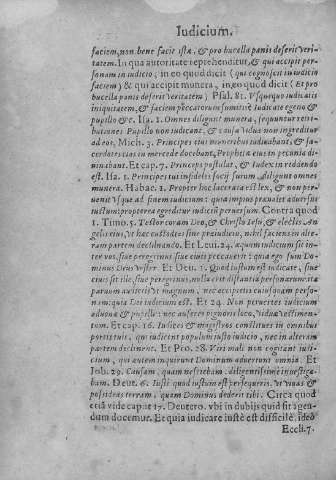 Iudicium.
faciem, non bene facit istæ, & pro bucella panis deserit veri-
tatem. In qua autoritate reprehenditur, & qui accipit per-
sonam in iudicio, in eo quod dicit (qui cognoscit in iudicio
faciem) & qui accipit munera, in eo quod dicit (Et pro
bucella panis deserit veritatem) Psal. 81. Vsquequo iudicatis
iniquitatem, & faciem peccatorum sumitis? Iudicate egeno &
pupillo &c. Isa. 1. Omnes diligunt munera, sequuntur retri-
butiones Pupillo non iudicant, & causa viduæ non ingreditur
ad eos, Mich. 3. Principes eius muneribus iudicabant, & sa-
cerdotes eius in mercede docebant, Prophetæ eius in pecunia di-
uinabant. Et cap. 7. Princeps postulat, & iudex in reddendo
est. Isa. 1. Principes tui infideles socij furum, diligunt omnes
munera. Habac. 1. Propter hoc lacerata est lex, & non per-
uenit vsque ad finem iudicium: quia impius præualet aduersus
iustum: propterea egreditur iudiciū peruersum. Contra quod
1. Timo. 5. Testor coram Deo, & Christo Iesu, & electis An-
gelis eius, vt hæc custodies sine præiudicio, nihil faciens in alte-
ram partem declinando. Et Leui. 24. æquum iudicium sit in-
ter vos, siue peregrinus siue ciuis peccauerit: quia ego sum Do-
minus Deus vester. Et Deu. 1. Quod iustum est iudicate, siue
ciuis sit ille, siue peregrinus, nulla erit distantia personarum: ita
paruum audietis vt magnum, nec accipietis cuiusquam perso-
nam: quia Dei iudicium est. Et 24. Non peruertes iudicium
aduenæ & pupilli: nec auferes pignoris loco, viduæ vestimen-
tum. Et cap. 16. Iudices & magistros constitues in omnibus
portis tuis, qui iudicent populum iusto iudicio, nec in alteram
partem declinent. Et Pro. 28. Viri mali non cogitant iudi-
cium, qui autem inquirunt Dominum aduertunt omnia. Et
Iob. 29. Causam, quam nesciebam, diligentissime inuestiga-
bam. Deut. 6. Iustè quod iustum est persequeris, vt viuas &
possideas terram, quam Dominus dederit tibi. Circa quod
etiā vide capat 17. Deutero. vbi in dubijs quid sit agen-
dum docemur. Et quia iudicare iustè est difficilè, ideo
Eccli. 7.